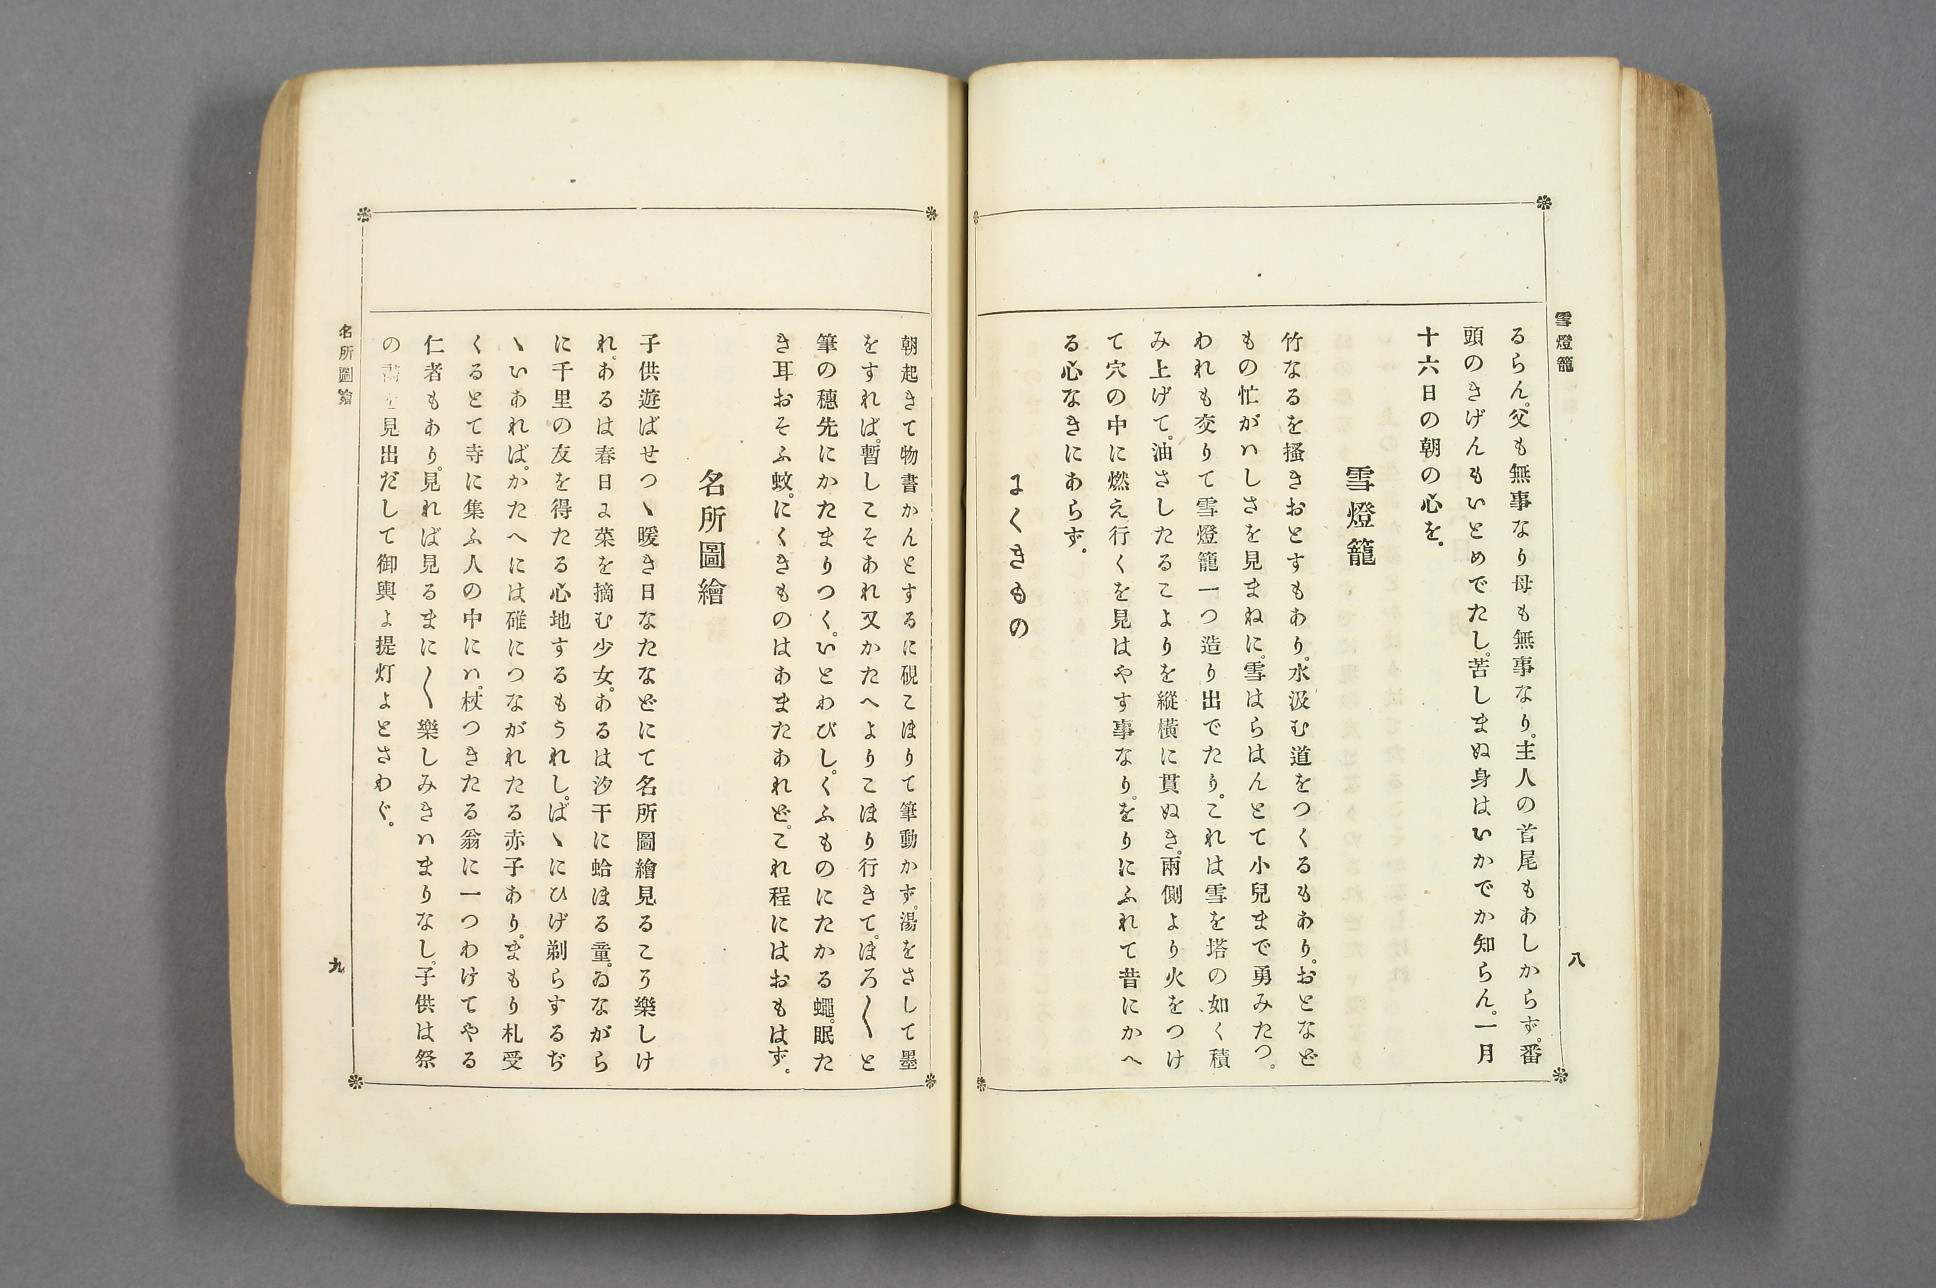 雪燈籠
八
るらん。父も無事なり母も無事なり。主人の首尾もあしからず。番
頭のきげんもいとめでたし。苦しまぬ身はいかでか知らん。一月
十六日の朝の心を。
雪燈籠
竹なるを搔きおとすもあり。水汲む道をつくるもあり。おとなど
もの忙がハしさを見まねに。雪はらはんとて小兒まで勇みたつ。
われも交りて雪燈籠一つ造り出でたり。これは雪を塔の如く積
み上げて。油さしたるこよりを縱橫に貫ぬき。兩側より火をつけ
て穴の中に燃え行くを見はやす事なり。をりにふれて昔にかへ
る心なきにあらず。
にくきもの
朝起きて物書かんとするに硯こほりて筆動かず。湯をさして墨
をすれば。暫しこそあれ又かたへよりこほり行きて。ほろ〱と
筆の穗先にかたまりつく。いとわびし。くふものにたかる蠅。眠た
き耳おそふ蚊。にくきものはあまたあれど。これ程にはおもはず。
名所圖繪
子供遊ばせつゝ暖き日なたなどにて名所圖繪見るこう樂しけ
れ。あるは春日に菜を摘む少女。あるは汐干に蛤ほる童。ゐながら
に千里の友を得たる心地するもうれし。ばゝにひげ剃らするぢ
ゝいあれば。かたへには碓につながれたる赤子あり。まもり札受
くるとて寺に集ふ人の中にハ。杖つきたる翁に一つわけてやる
仁者もあり。見れば見るまに〱樂しみきハまりなし。子供は祭
の書を見出だして御輿よ提灯よとさわぐ。
名所圖繪
九